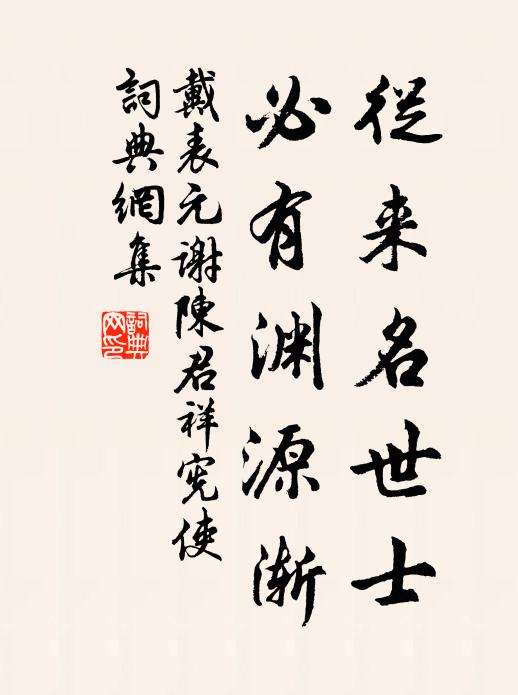 從来名世士
必有渊源漸
戴表元谢陳君祥宪使
詞典網集
詞典网印